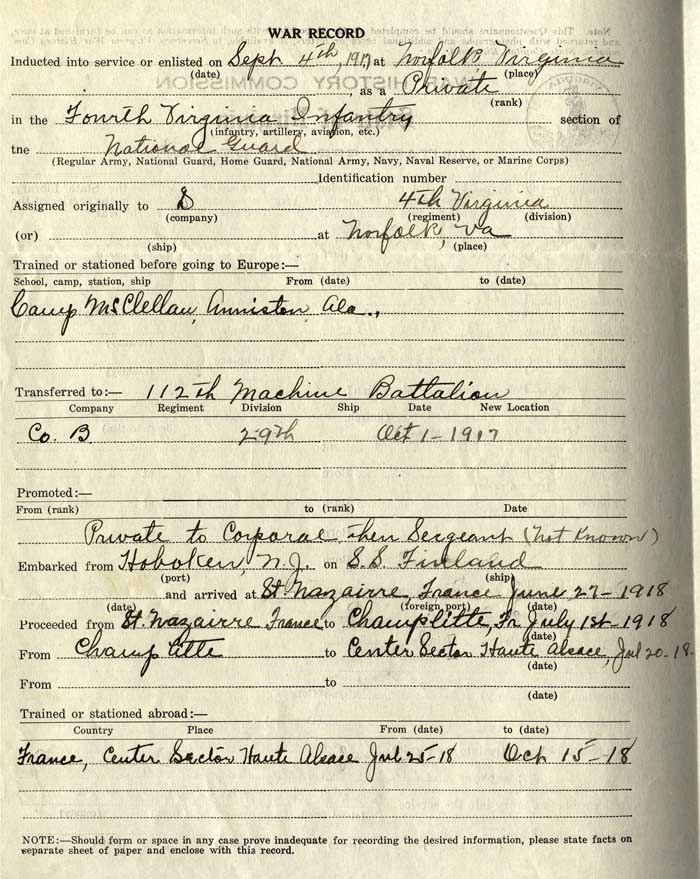 WAR RECORD
Inducted into service or enlisted on Sept 4th, 1917 at Norfolk Virginia
(date) (place)
as a Private
(rank)
in the Fourth Virginia Infantry section of
(infantry, artillery, aviation, etc.)
the National Guard
(Regular Army, National Guard, Home Guard, National Army, Navy, Naval Reserve, or Marine Corps)
Identification number
Assigned originally to D 4th Virginia
(company) (regiment) (division)
(or) at Norfolk, Va
(ship) (place)
Trained or stationed before going to Europe:—
School, camp, station, ship From (date) to (date)
Camp McClellan, Anniston, Ala.,
Transferred to:— 112th Machine Battalion
Company Regiment Division Ship Date New Location
Co. B 29th Oct 1-1917
Promoted:—
From (rank) to (rank) Date
Private to Corporal then Sergeant (Not Known)
Embarked from Hoboken, N.J. on S.S. Finland
(port) (ship)
and arrived at St. Nazairre, France June 27-1918
(date) (foreign port) (date)
Proceeded from St. Nazairre France to Champlitte, Fr July 1st-1918
(date)
From Champlitte to Center Sector Haute Alsace, Jul 20-18-
(date)
From to
(date)
Trained or stationed abroad:—
Country Place From (date) to (date)
France, Center Sector Haute Alsace Jul 25-18 Oct 15-18
NOTE:—Should form or space in any case prove inadequate for recording the desired information, please state facts on
separate sheet of paper and enclose with this record.